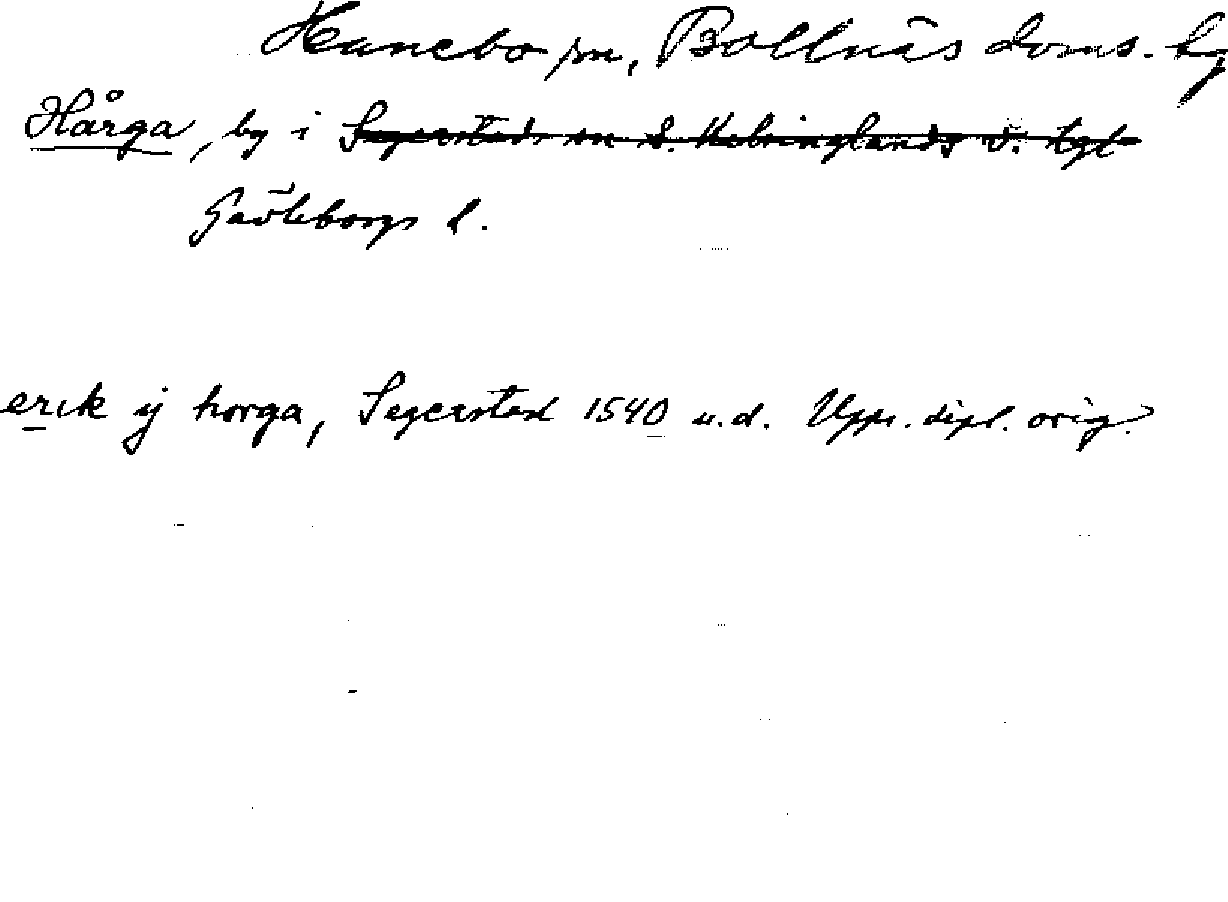 Hanebo sn, Bollnäs doms. tg
Hårga, by i Segersteds sn S. Helsinglands v. tgl
Gävleborgs l.
erik ij horga, Segersted 1540 u.d. Upps. dipl. orig.